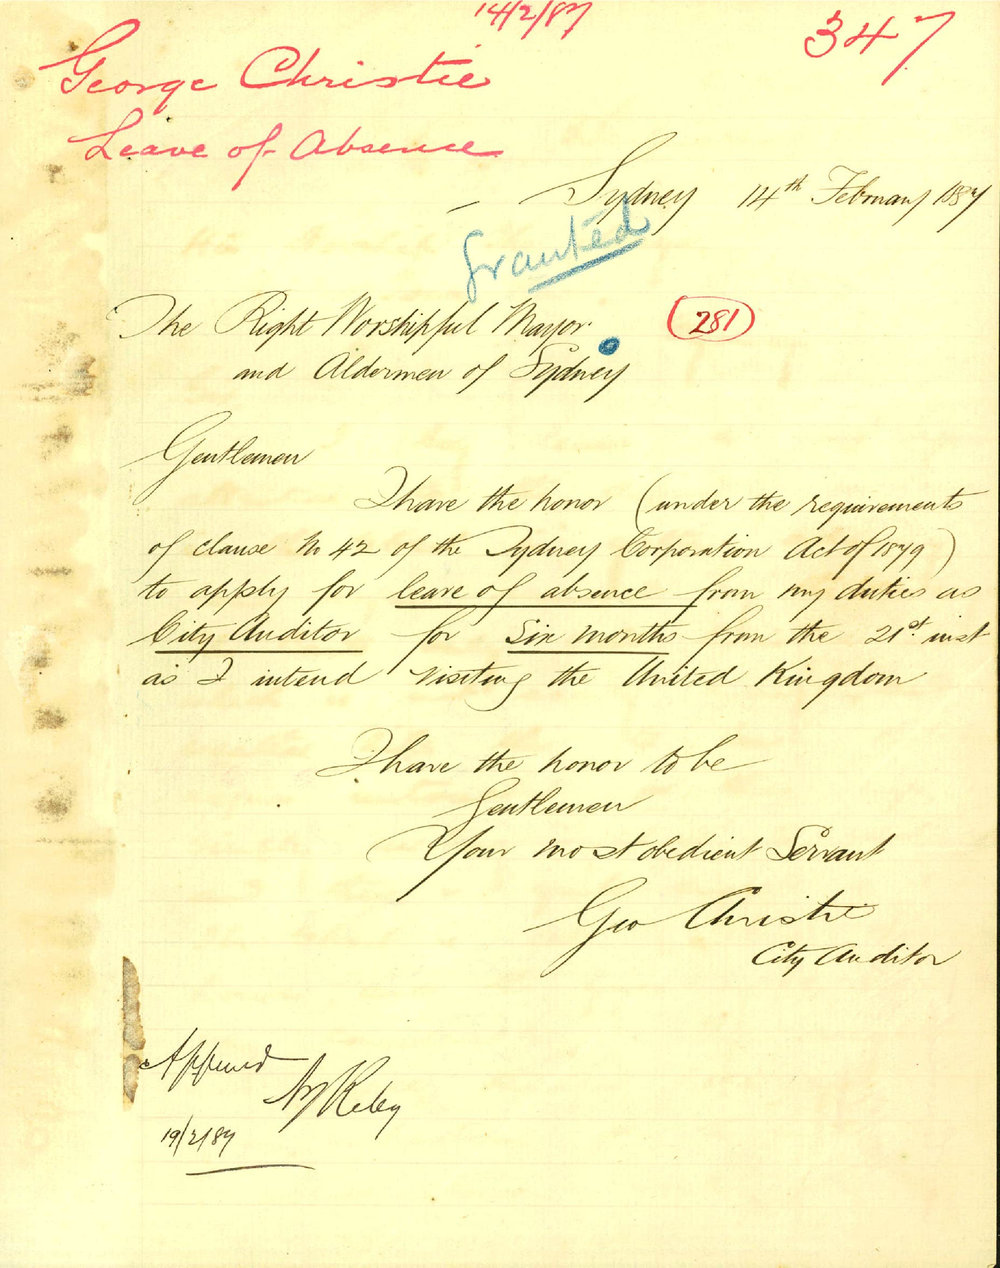 14/2/87
347
George Christie
Leave of Absence
Sydney 14th February 1887
Granted
The Right Worshipful Mayor
281
and Aldermen of Sydney
Gentlemen
I have the honor (under the requirements
of clause No 42 of the Sydney Corporation Act of 1879)
to apply for leave of absence from my duties as
City Auditor for Six months from the 21st inst
as I intend visiting the United Kingdom
I have the honor to be
Gentlemen
Your most obedient Servant
Geo Christie
City Auditor
Approved
19/2/87